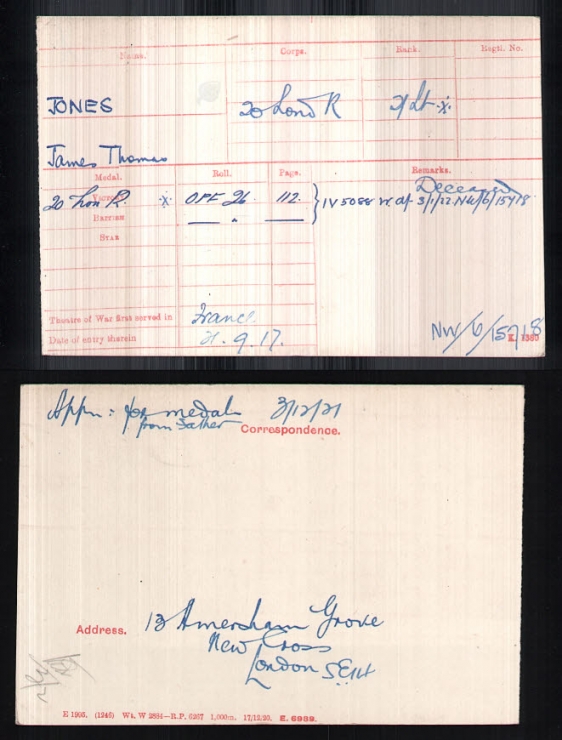 Name. Corps. Rank. Regtl. No.
JONES 20 Lond R 2/Lt ·x·
James Thomas
Medal. Roll. Page. Remarks.
Deceased
20 Lon R. Victory ·x· OFF 26 112. } IV 5088 3/1/22 NW/6/15718
British — " —
Star
Theatre of War first served in France.
Date of entry therein 21.9.17.
NW/6/15718
E. 1380
Appn: for medals 3/12/21
from Father
Correspondence.
Address. 13 Amersham Grove
New Cross
London S.E.14
E 1905. (1246) Wt. W 2884—R.P. 6267 1,000m. 17/12/20. E. 6989.